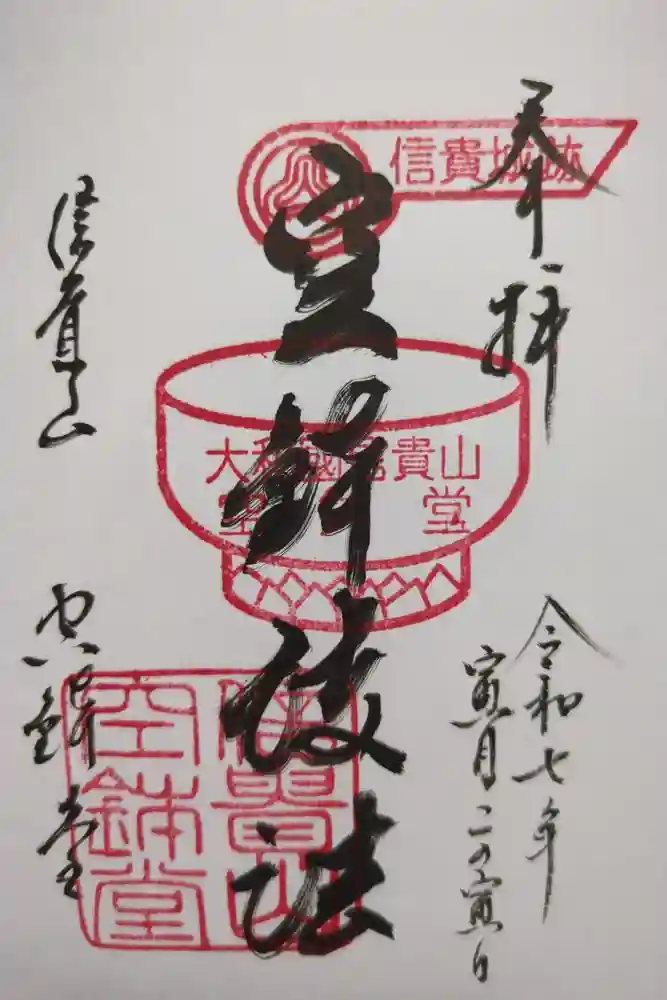 奉拝
信貴城跡
令和七年
寅月二の寅日
空鉢護法
大和國信貴山
空鉢堂
信貴山
空鉢堂
信貴山
空鉢堂